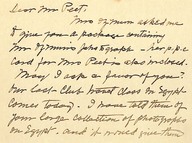 Dear Mr Peet.
Mrs Symson asked me
to give you a package containing
Mr Symson's photograph - her p.p.c
card for Mrs Peet is also inclosed.
May I ask a favor of you?
Our East Club travel class in Egypt
comes today. I have told them of
your large collection of photographs
in Egypt. and it would give them